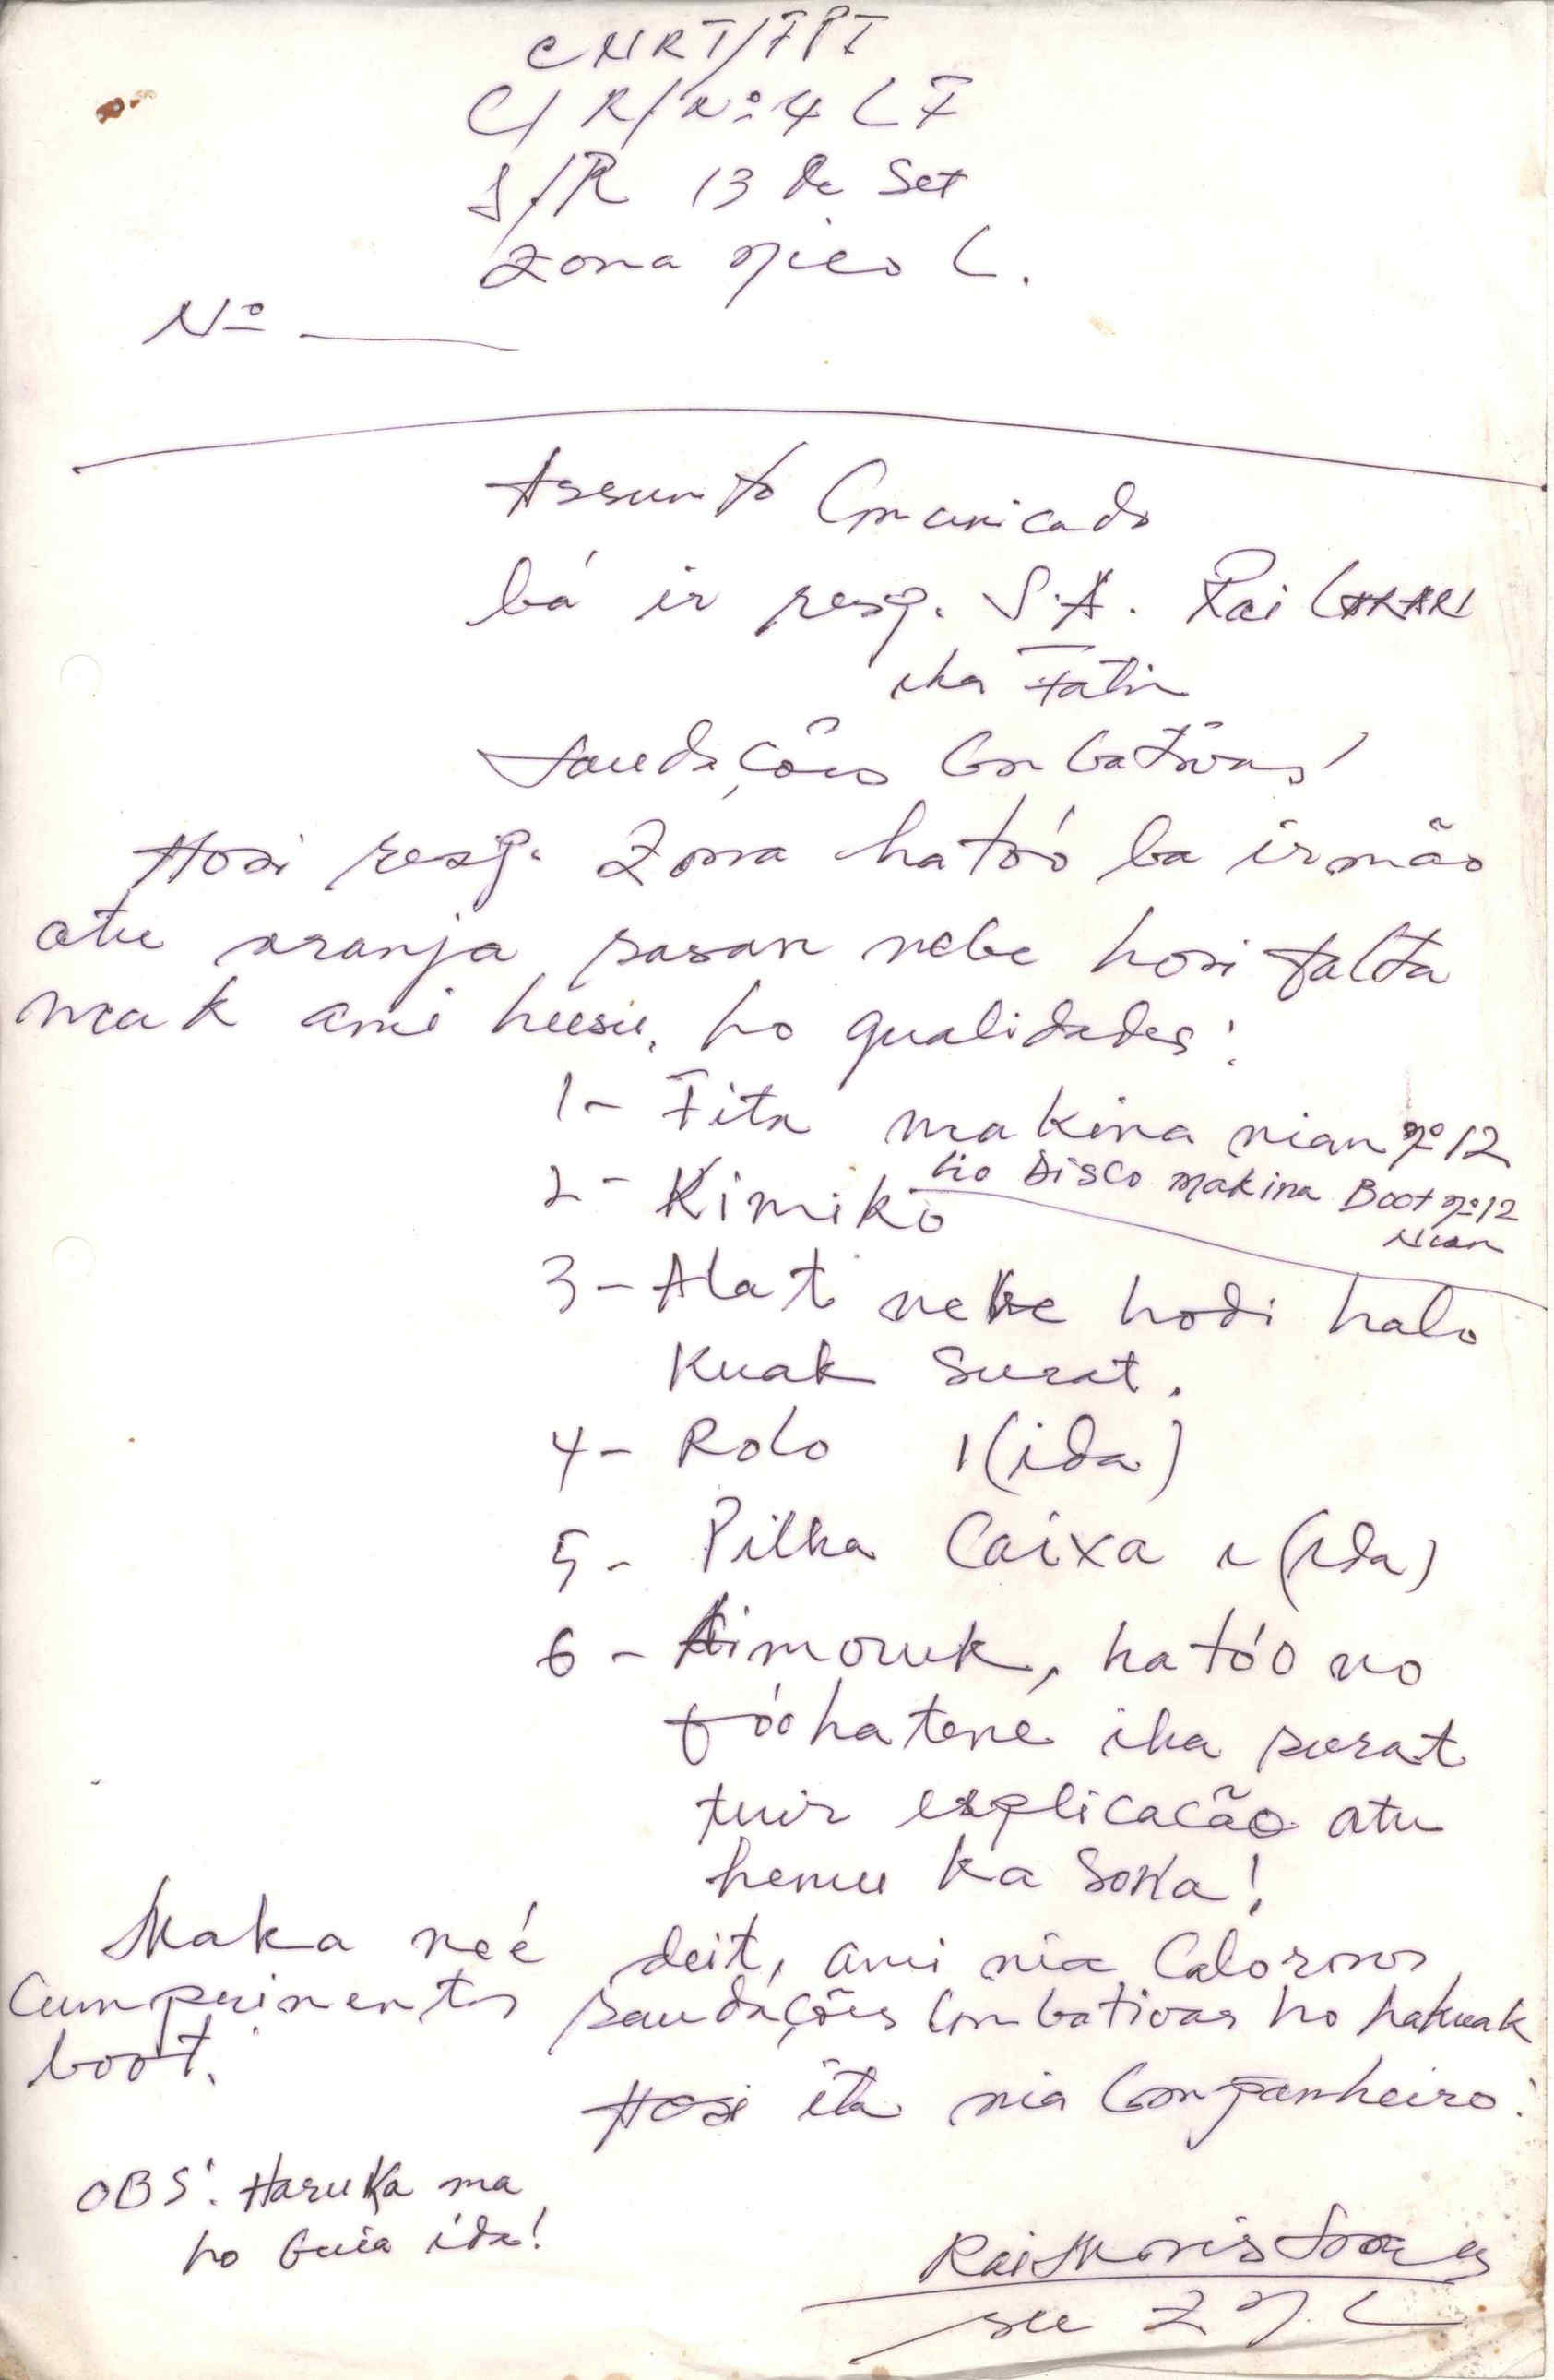 CNRT/FPI
C/R/Nº 4 LF
S/R 13 de Set
Zona Nico L.
Nº
Assunto Comunicado
bá ir resp. S.A. Rai LAKAN
iha Fatin
Saudações Combativas!
Hosi resp. Zona ható'o ba irmão
atu aranja sasan nebe hosi falta
mak ami husu, ho qualidades:
1- Fita makina nian nº 12
ho Disco makina Boot nº 12
Nian
2- Kimiko
3- Alat nebe hodi halo
Kuak Surat.
4- Rolo 1 (ida)
5- Pilha Caixa 1 (ida)
6- Aimoruk, hatóo no
fóo hatene iha surat
tuir explicacão atu
hemu ka Sona!
Maka neé deit, ami nia Calorosos
Cumprimentos saudações Combativas ho hakuak
boot.
Hosi ita nia Companheiro:
OBS: Haruka ma
ho Guia ida!
Rai